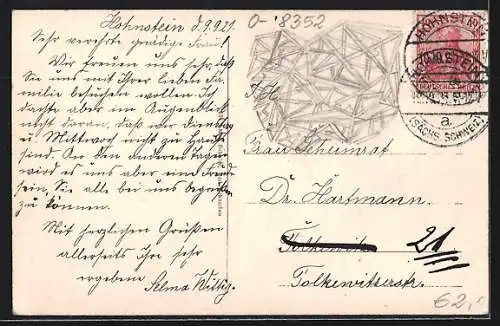 Hohnstein d. 9.9.21.
Sehr verehrte gnädige Frau!
Wir freuen uns sehr daß
Sie uns mit Ihrer lieben Fa-
milie besuchen wollen. Ich
dachte aber im Augenblick
nicht daran, daß wir Dienstag
u. Mittwoch nicht zu Haus
sind. An den anderen Tagen
wird es uns aber eine Freude
sein, Sie alle bei uns begrüßen
zu können.
Mit herzlichen Grüßen
allerseits Ihre sehr
ergebene Selma Wittig.
0- 8352
Frau Geheimrat
Dr. Hartmann.
21
Tolkewitzerstr.
62,-
HOHNSTEIN
DEUTSCHES REICH
a.
(SÄCHS. SCHWEIZ)